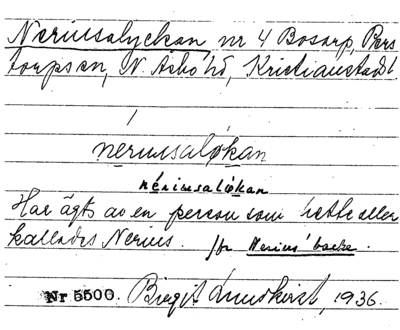 Neriusalyckan nr 4 Bosarp, Pers
torps sn, N. Åsbo hd, Kristianstads l.
neriusaløkan
nériusaløkan
Har ägts av en person som hette eller
kallades Nerius. Jfr Nerius' backe.
Nr 5500. Birgit Lundkvist, 1936.